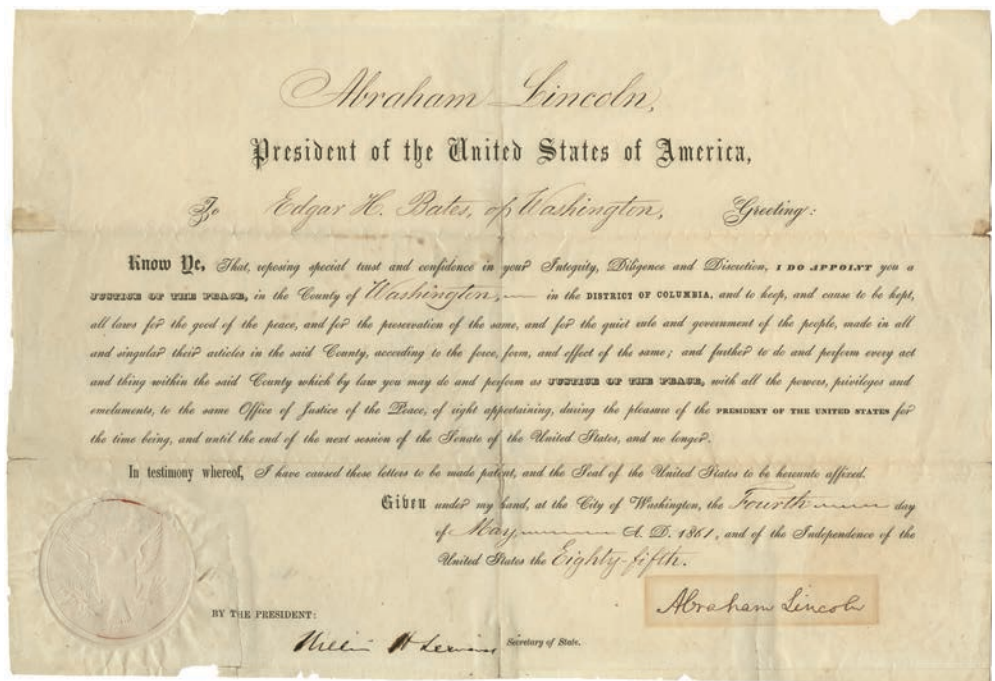 Abraham Lincoln,
President of the United States of America,
To Edgar H. Bates, of Washington, Greeting:
Know Ye, That, reposing special trust and confidence in your Integrity, Diligence and Discretion, I DO APPOINT you a
JUSTICE OF THE PEACE, in the County of Washington, in the DISTRICT OF COLUMBIA, and to keep, and cause to be kept,
all laws for the good of the peace, and for the preservation of the same, and for the quiet rule and government of the people, made in all
and singular their articles in the said County, according to the force, form, and effect of the same; and further to do and perform every act
and thing within the said County which by law you may do and perform as JUSTICE OF THE PEACE, with all the powers, privileges and
emoluments, to the same Office of Justice of the Peace, of right appertaining, during the pleasure of the PRESIDENT OF THE UNITED STATES for
the time being, and until the end of the next session of the Senate of the United States, and no longer.
In testimony whereof, I have caused these letters to be made patent, and the Seal of the United States to be hereunto affixed.
Given under my hand, at the City of Washington, the Fourth day
of May A. D. 1861, and of the Independence of the
United States the Eighty-fifth.
Abraham Lincoln
BY THE PRESIDENT:
William H Seward Secretary of State.